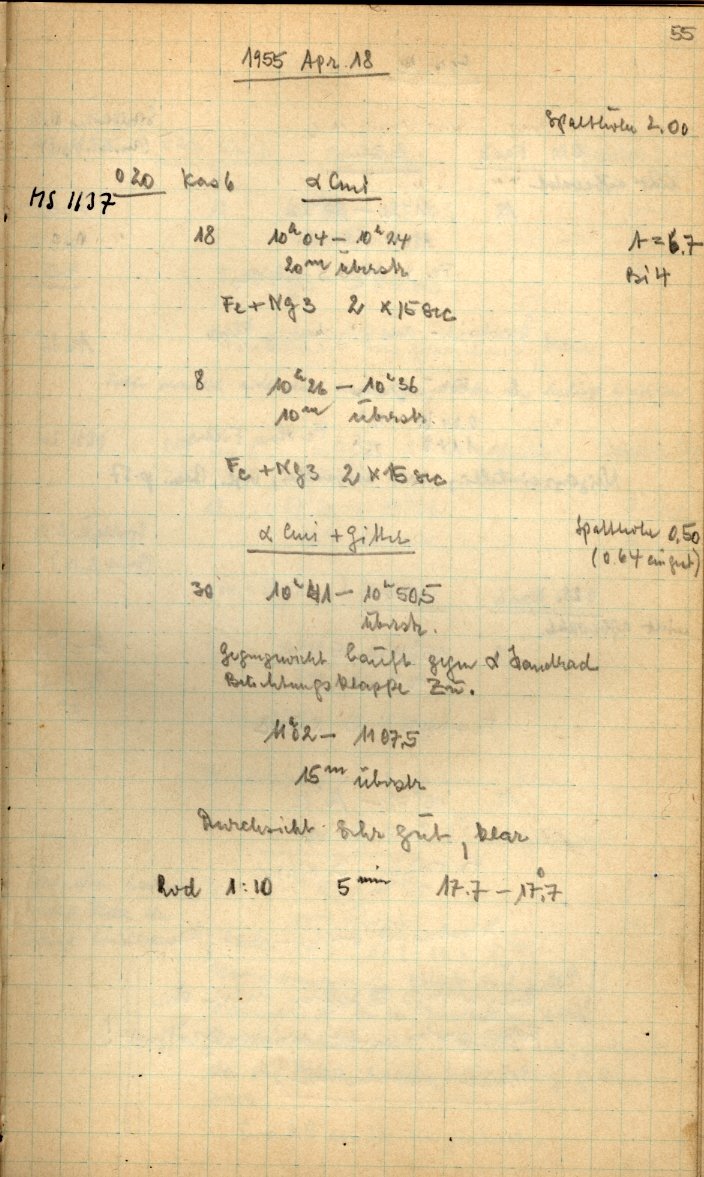 55
1955 Apr. 18
Spalthöhe 2.00
020 Kas b α Cmi
MS 1137
18 10ʰ04 – 10ʰ24
20ᵐ überstr.
Fe + Ng3 2 × 15 sec
8 10ʰ26 – 10ʰ36
10ᵐ überstr.
Fe + Ng3 2 × 15 sec
α Cmi + Gitter
Spalthöhe 0,50
(0.64
30 10ʰ41 – 10ʰ50,5
überstr.
Gegengewicht läuft gegen α Handrad
Belichtungsklappe Zu.
11ʰ02 – 1107,5
15ᵐ überstr
Durchsicht sehr gut, klar
Rod 1:10 5 min 17.7 – 17°,7